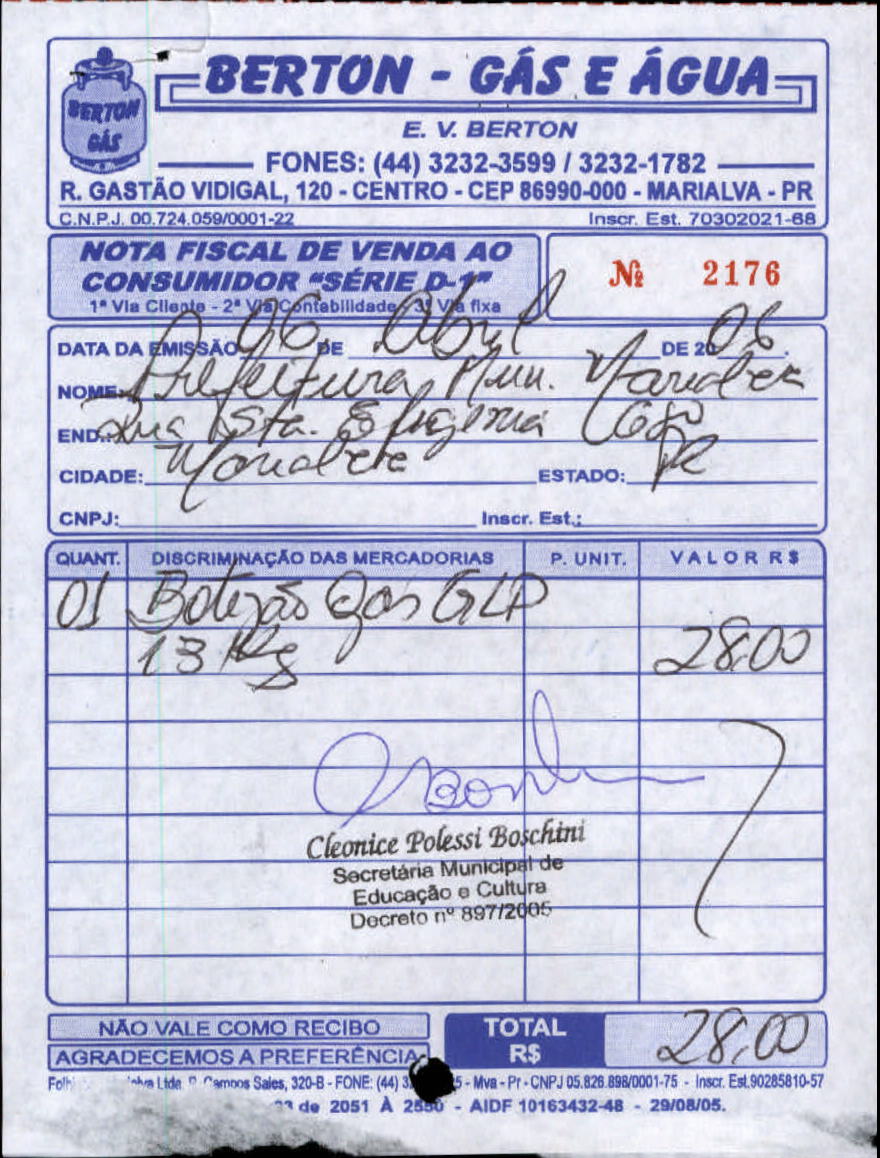 BERTON GÁS
BERTON - GÁS E ÁGUA
E. V. BERTON
FONES: (44) 3232-3599 / 3232-1782
R. GASTÃO VIDIGAL, 120 - CENTRO - CEP 86990-000 - MARIALVA - PR
C.N.P.J. 00.724.059/0001-22 Inscr. Est. 70302021-68
NOTA FISCAL DE VENDA AO
CONSUMIDOR "SÉRIE D-1"
1ª Via Cliente - 2ª Via Contabilidade - 3ª Via fixa
Nº 2176
DATA DA EMISSÃO 06 DE Abril DE 2006.
NOME: Prefeitura Mun. Marialva
END.: Rua Sta. Efigenia
CIDADE: Marialva ESTADO: PR
CNPJ: Inscr. Est.:
QUANT. DISCRIMINAÇÃO DAS MERCADORIAS P. UNIT. VALOR R$
01 Botijão Gás GLP
13 Kg 28,00
Cleonice Polessi Boschini
Secretária Municipal de
Educação e Cultura
Decreto nº 897/2005
NÃO VALE COMO RECIBO
AGRADECEMOS A PREFERÊNCIA
TOTAL R$ 28,00
Ltda. Campos Sales, 320-B - FONE: (44) - Mva - Pr - CNPJ 05.826.898/0001-75 - Inscr. Est.90285810-57
de 2051 À 2550 - AIDF 10163432-48 - 29/08/05.